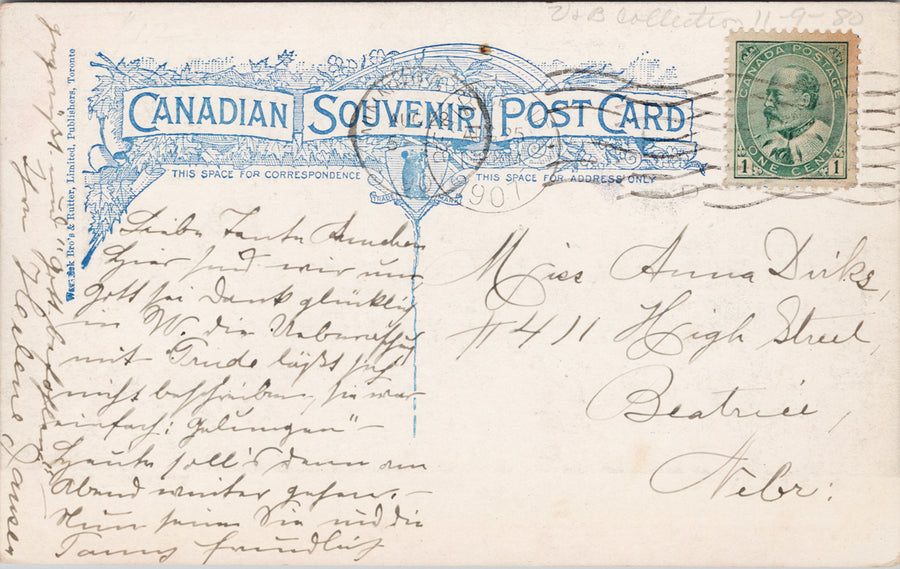 V & B Collection 11-9-80
CANADIAN SOUVENIR POST CARD
THIS SPACE FOR CORRESPONDENCE
THIS SPACE FOR ADDRESS ONLY
TRADE MARK
CANADA POSTAGE
1 ONE CENT 1
1907
Warwick Bro's & Rutter, Limited, Publishers, Toronto
Liebe Tante Annchen
Hier sind wir nun
Gott sei Dank glücklich
in W. die Ueberraschg
mit Trude läßt sich
nicht beschreiben, sie war
einfach: "Gelungen" –
Heute soll's denn am
Abend weiter gehen. –
Nun seien Sie und die
freundlich
gegrüßt und "Gott befohlen"
Von Helene Jansen
Miss Anna Dirks,
#411 High Street,
Beatrice,
Nebr: